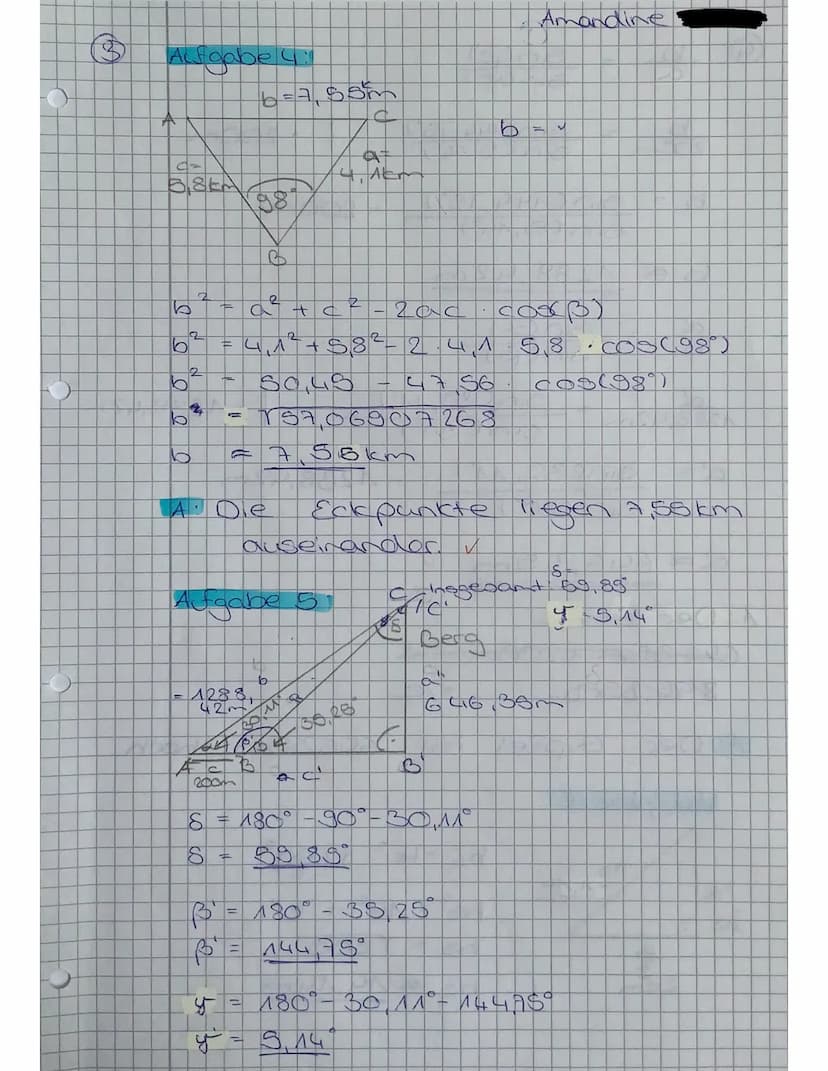 Amandine
③ Aufgabe 4:
b = 7,55km
A
C
b = ✓
c=
5,8km
a=
4,1km
98°
B
b² = a² + c² - 2ac · cos(β)
b² = 4,1² + 5,8² - 2 · 4,1 · 5,8 · cos(98°)
b² = 50,45 - 47,56 · cos(98°)
b = √57,06907268
b = 7,55km
A: Die Eckpunkte liegen 7,55km
auseinander. ✓
Aufgabe 5:
C insgesamt: δ= 59,89°
C'
γ = 5,14°
δ
Berg
b
= 1288,
42m
a
30,11°
35,25°
a'
646,35m
A
c
200m
B
c'
B'
δ = 180° - 90° - 30,11°
δ = 59,89°
β' = 180° - 35,25°
β' = 144,75°
γ = 180° - 30,11° - 144,75°
γ = 5,14°